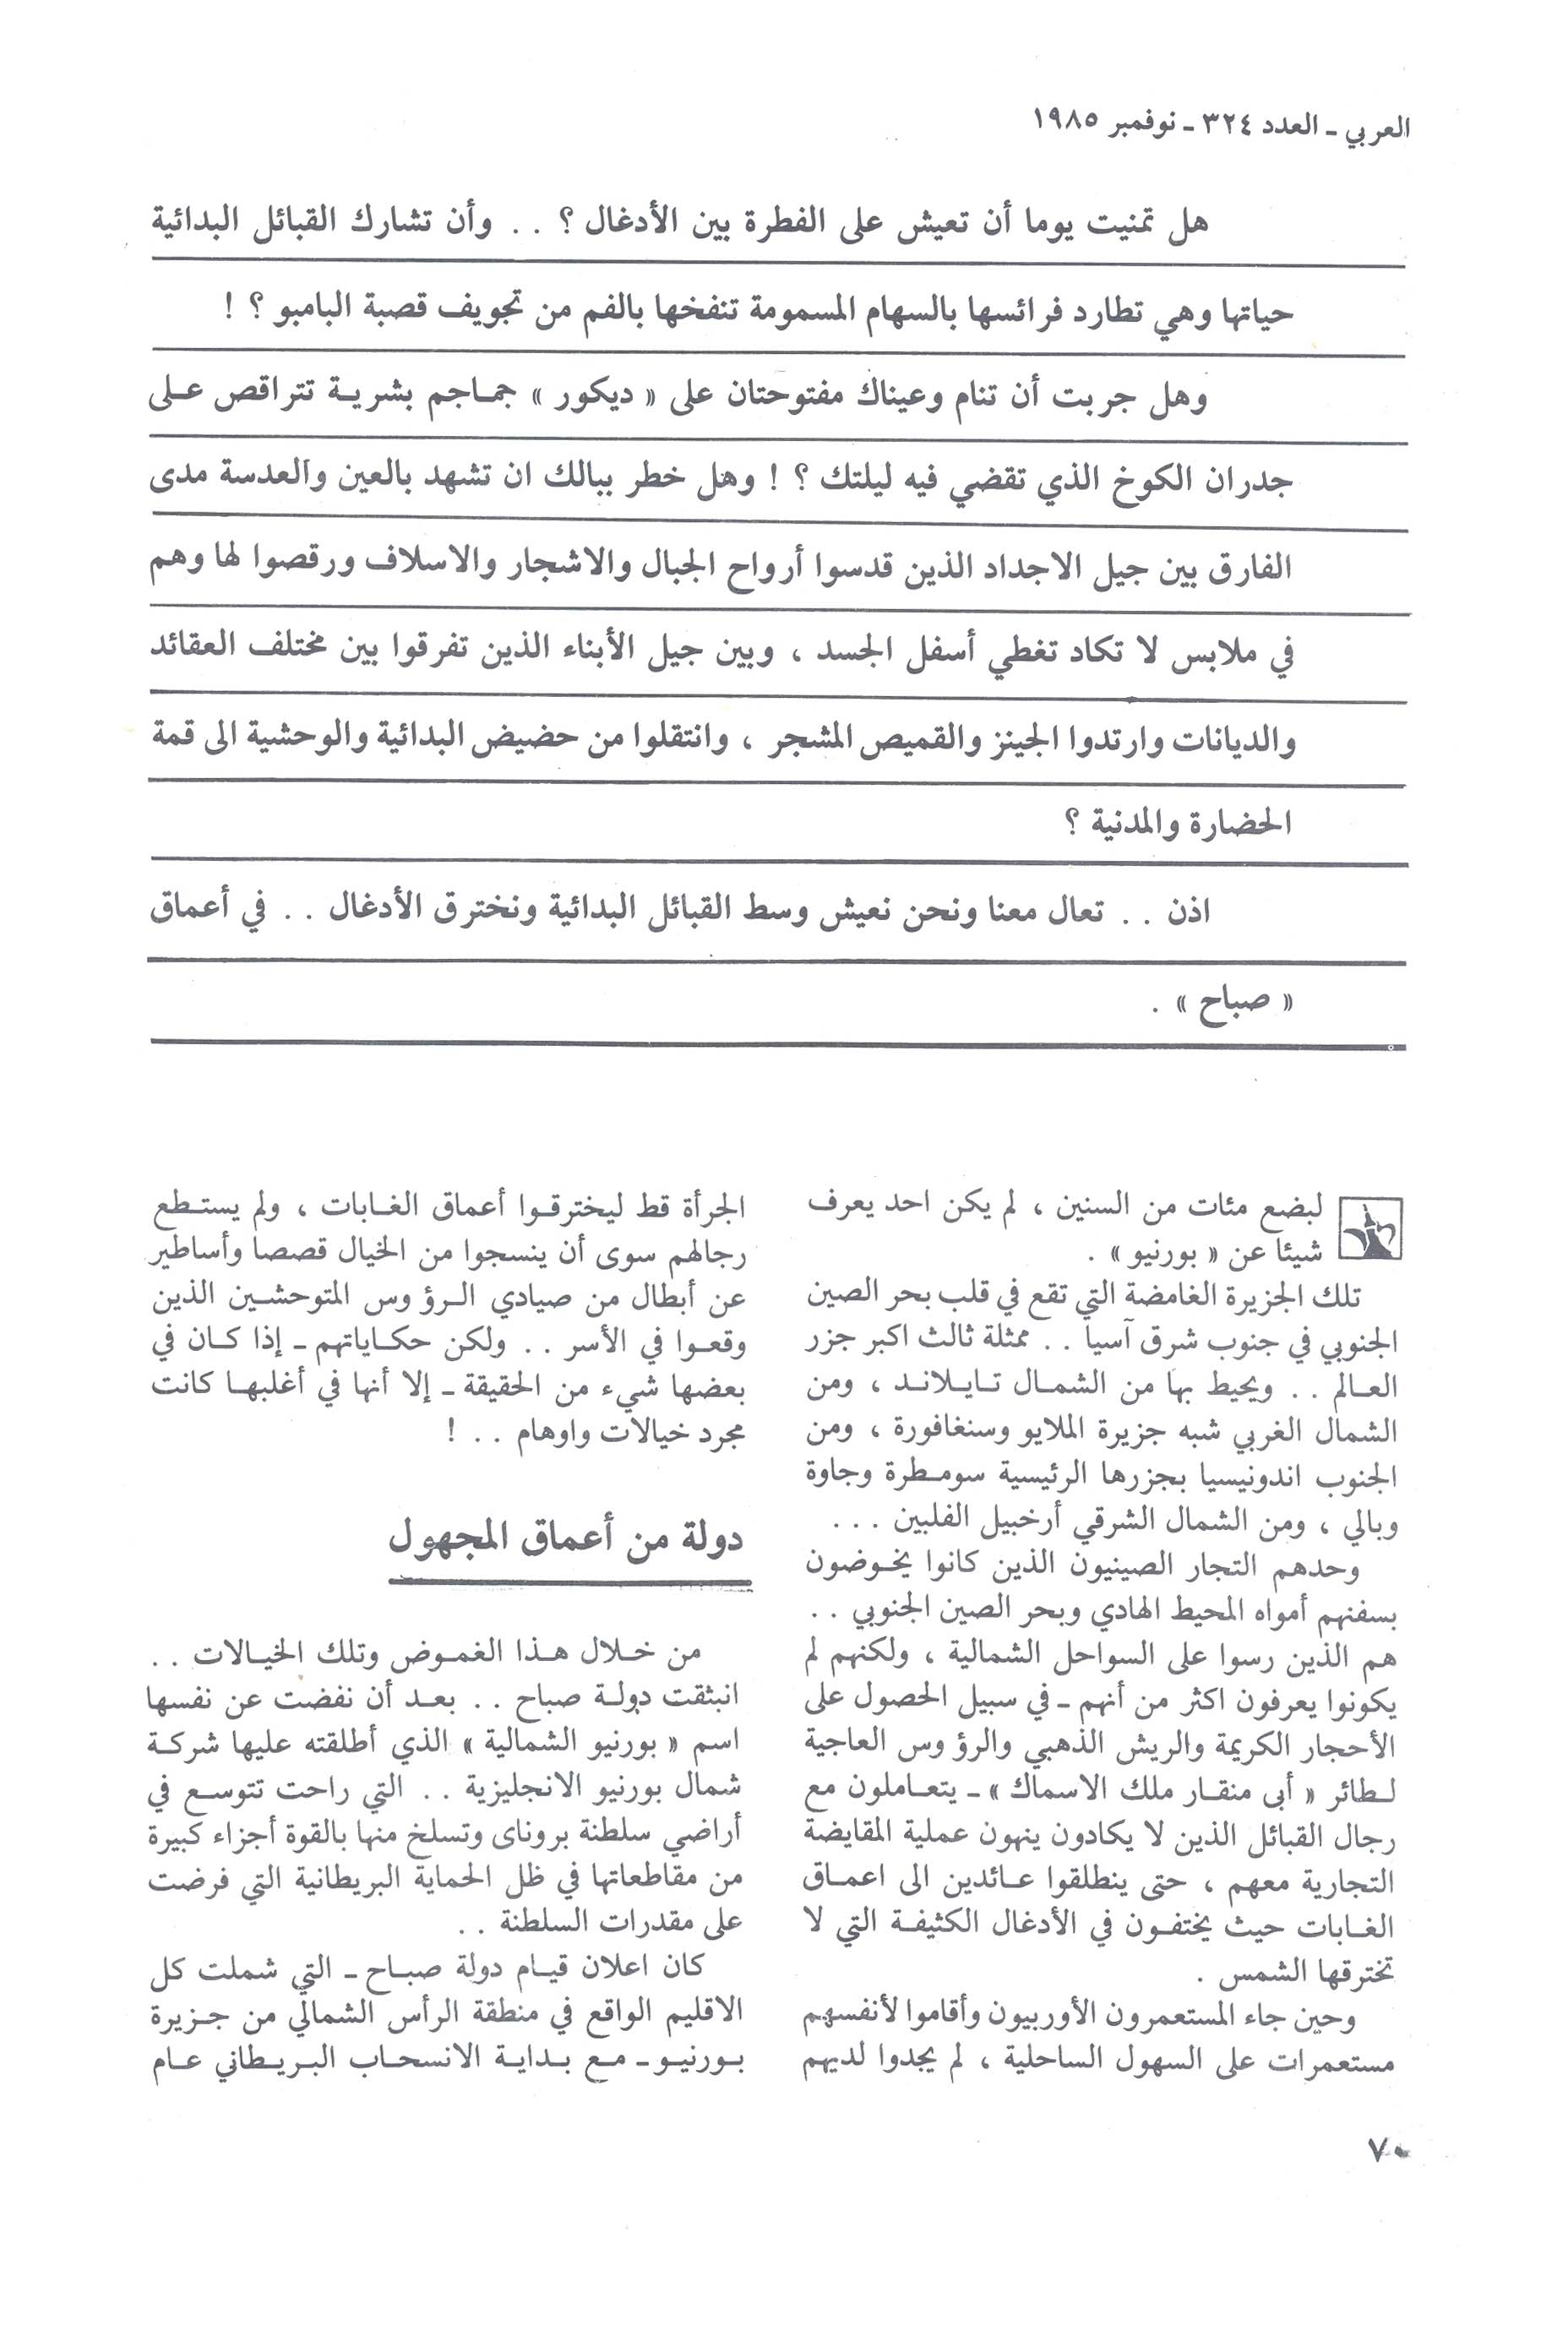 العربي ـ العدد ٣٢٤ ـ نوفمبر ١٩٨٥
هل تمنيت يوما أن تعيش على الفطرة بين الأدغال ؟ . . وأن تشارك القبائل البدائية
حياتها وهي تطارد فرائسها بالسهام المسمومة تنفخها بالفم من تجويف قصبة البامبو ؟ !
وهل جربت أن تنام وعيناك مفتوحتان على « ديكور » جماجم بشرية تتراقص على
جدران الكوخ الذي تقضي فيه ليلتك ؟ ! وهل خطر ببالك ان تشهد بالعين والعدسة مدى
الفارق بين جيل الاجداد الذين قدسوا أرواح الجبال والاشجار والاسلاف ورقصوا لها وهم
في ملابس لا تكاد تغطي أسفل الجسد ، وبين جيل الأبناء الذين تفرقوا بين مختلف العقائد
والديانات وارتدوا الجينز والقميص المشجر ، وانتقلوا من حضيض البدائية والوحشية الى قمة
الحضارة والمدنية ؟
اذن . . تعال معنا ونحن نعيش وسط القبائل البدائية ونخترق الأدغال . . في أعماق
« صباح » .
لبضع مئات من السنين ، لم يكن احد يعرف
شيئا عن « بورنيو » .
تلك الجزيرة الغامضة التي تقع في قلب بحر الصين
الجنوبي في جنوب شرق آسيا . . ممثلة ثالث اكبر جزر
العالم . . ويحيط بها من الشمال تايلاند ، ومن
الشمال الغربي شبه جزيرة الملايو وسنغافورة ، ومن
الجنوب اندونيسيا بجزرها الرئيسية سومطرة وجاوة
وبالي ، ومن الشمال الشرقي أرخبيل الفلبين . . .
وحدهم التجار الصينيون الذين كانوا يخوضون
بسفنهم أمواه المحيط الهادي وبحر الصين الجنوبي . .
هم الذين رسوا على السواحل الشمالية ، ولكنهم لم
يكونوا يعرفون اكثر من أنهم ـ في سبيل الحصول على
الأحجار الكريمة والريش الذهبي والرؤوس العاجية
لطائر « أبى منقار ملك الاسماك » ـ يتعاملون مع
رجال القبائل الذين لا يكادون ينهون عملية المقايضة
التجارية معهم ، حتى ينطلقوا عائدين الى اعماق
الغابات حيث يختفون في الأدغال الكثيفة التي لا
تخترقها الشمس .
وحين جاء المستعمرون الأوربيون وأقاموا لأنفسهم
مستعمرات على السهول الساحلية ، لم يجدوا لديهم
الجرأة قط ليخترقوا أعماق الغابات ، ولم يستطع
رجالهم سوى أن ينسجوا من الخيال قصصا وأساطير
عن أبطال من صيادي الرؤوس المتوحشين الذين
وقعوا في الأسر . . ولكن حكاياتهم ـ إذا كان في
بعضها شيء من الحقيقة ـ إلا أنها في أغلبها كانت
مجرد خيالات واوهام . . !
دولة من أعماق المجهول
من خلال هذا الغموض وتلك الخيالات . .
انبثقت دولة صباح . . بعد أن نفضت عن نفسها
اسم « بورنيو الشمالية » الذي أطلقته عليها شركة
شمال بورنيو الانجليزية . . التي راحت تتوسع في
أراضي سلطنة بروناى وتسلخ منها بالقوة أجزاء كبيرة
من مقاطعاتها في ظل الحماية البريطانية التي فرضت
على مقدرات السلطنة . .
كان اعلان قيام دولة صباح ـ التي شملت كل
الاقليم الواقع في منطقة الرأس الشمالي من جزيرة
بورنيو ـ مع بداية الانسحاب البريطاني عام
٧٠